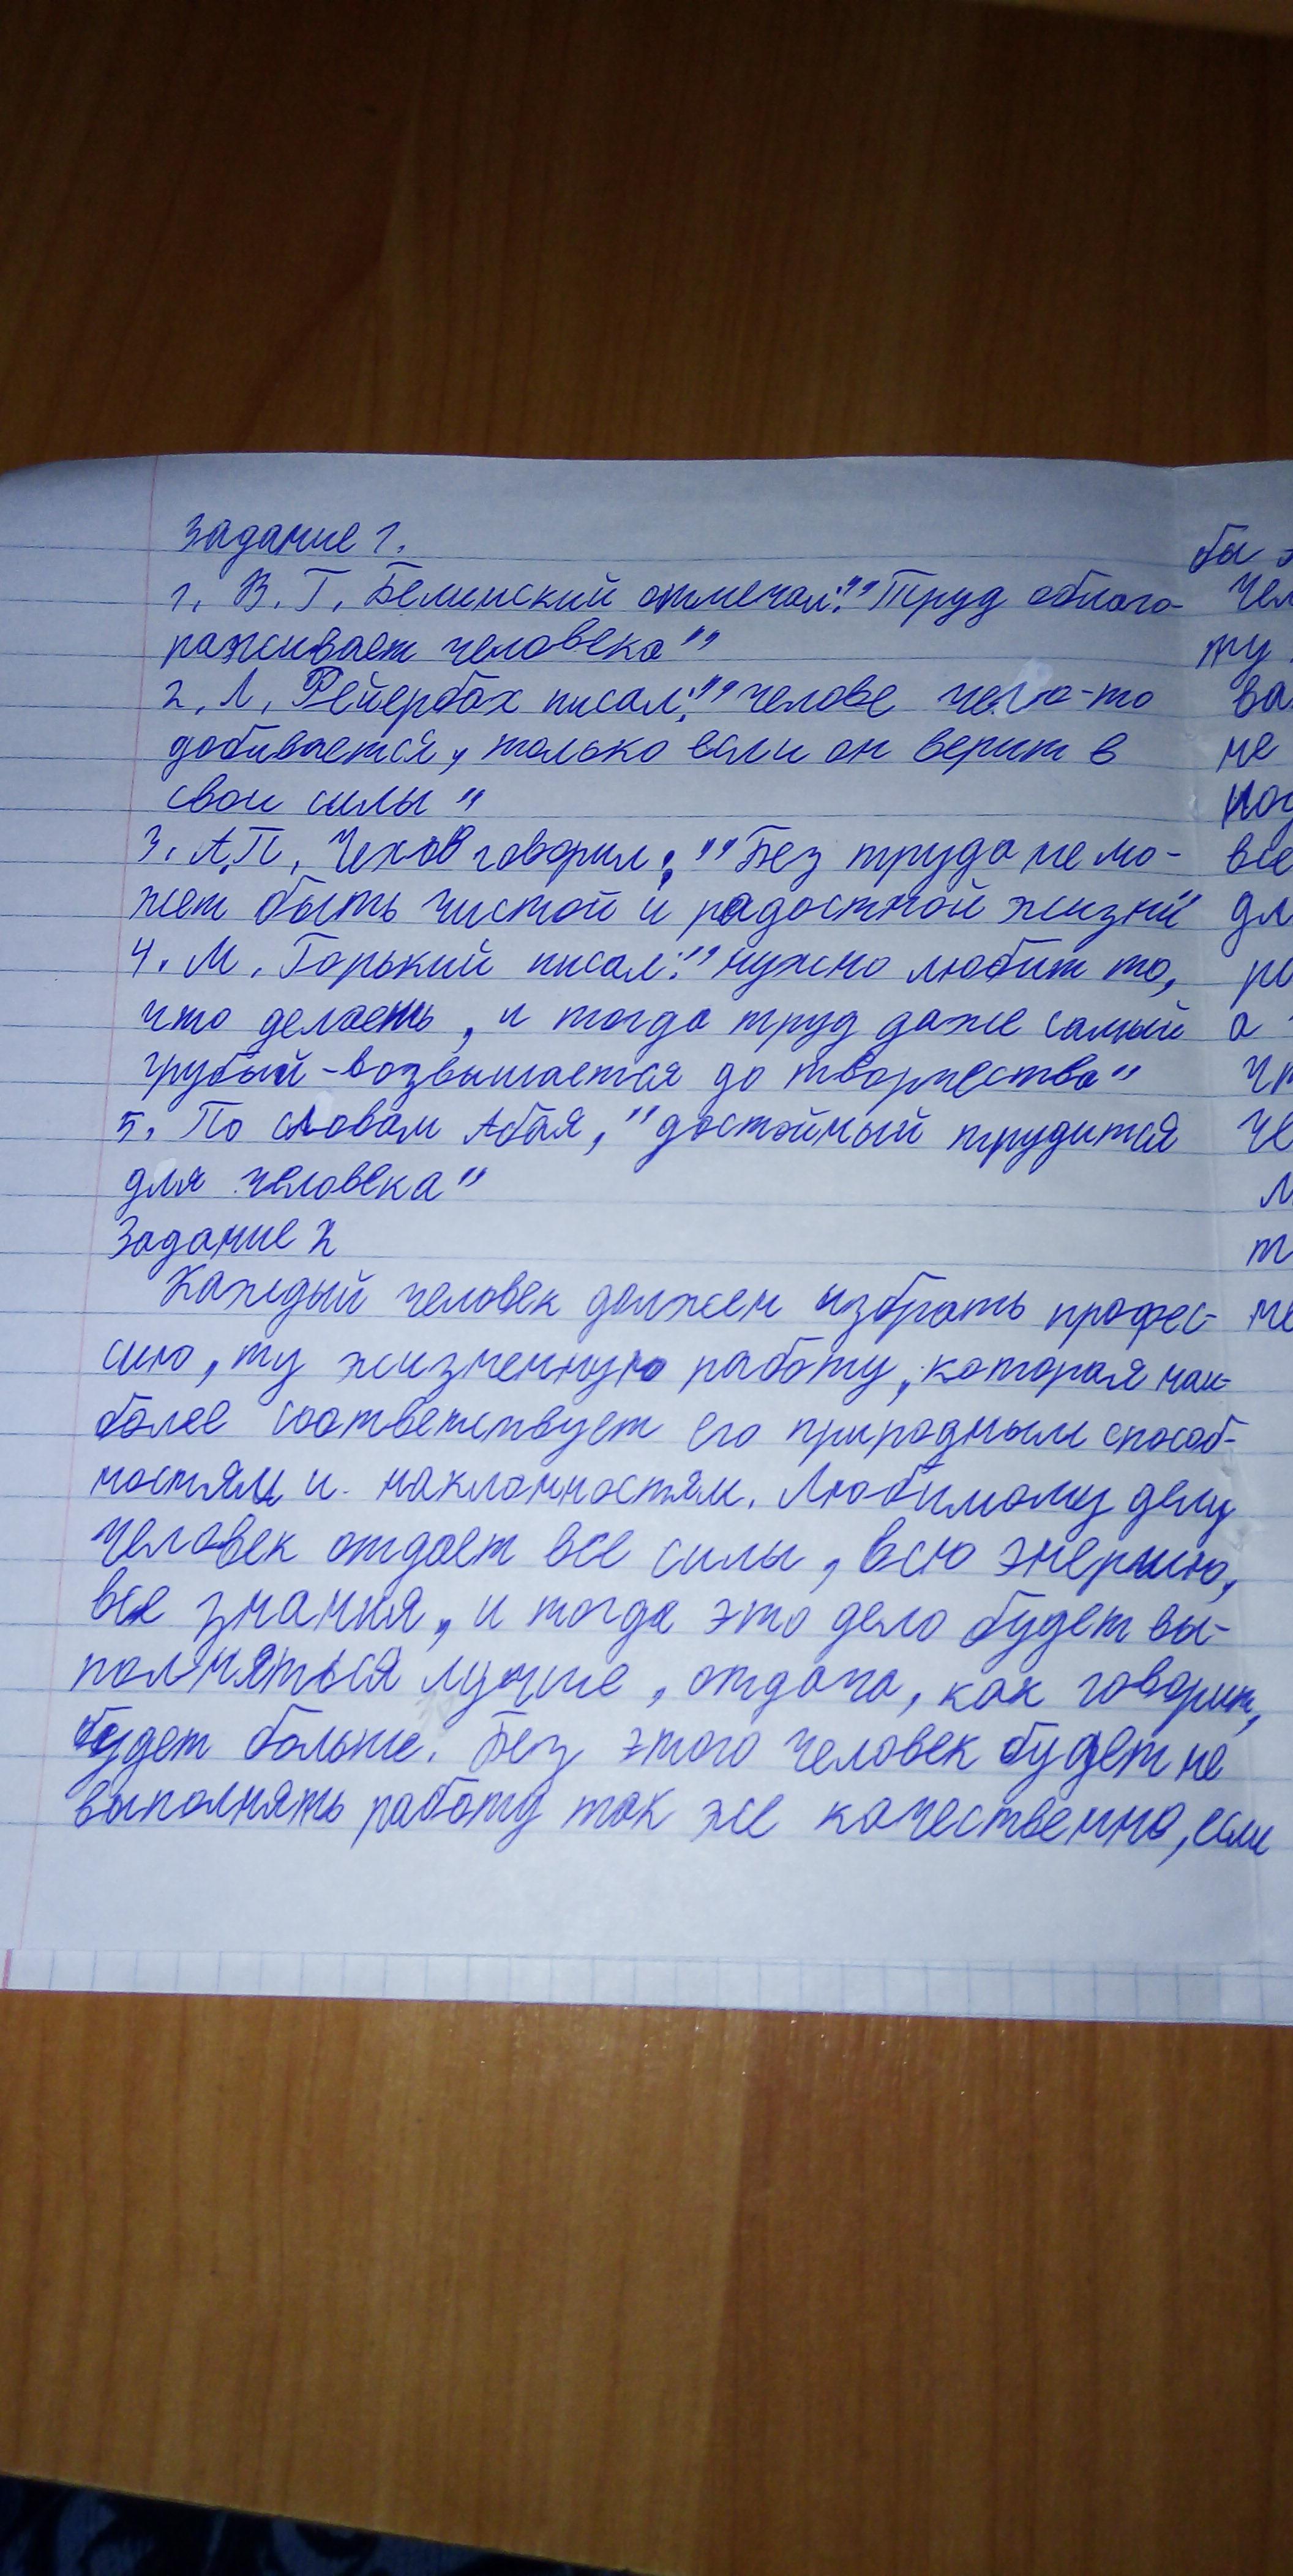 Задание 1.
1. В. Г. Белинский отмечал: "Труд облаго-
раживает человека"
2. Л. Фейербах писал: "челове чего-то
добивается, только если он верит в
свои силы"
3. А.П. Чехов говорил: "Без труда не мо-
жет быть чистой и радостной жизни"
4. М. Горький писал: "нужно любит то,
что делаешь, и тогда труд даже самый
грубый - возвышается до творчества"
5. По словам Абая, "достойный трудится
для человека"
Задание 2
Каждый человек должен избрать профес-
сию, ту жизненную работу, которая наи-
более соответствует его природным способ-
ностям и наклонностям. Любимому делу
человек отдает все силы, всю энергию,
все знания, и тогда это дело будет вы-
полняться лучше, отдача, как говорит,
будет больше. Без этого человек будет не
выполнять работу так же качественно, если
бы
чел
ту
ва
не
ног
все
дл
ро
а
чт
че
л
т
не